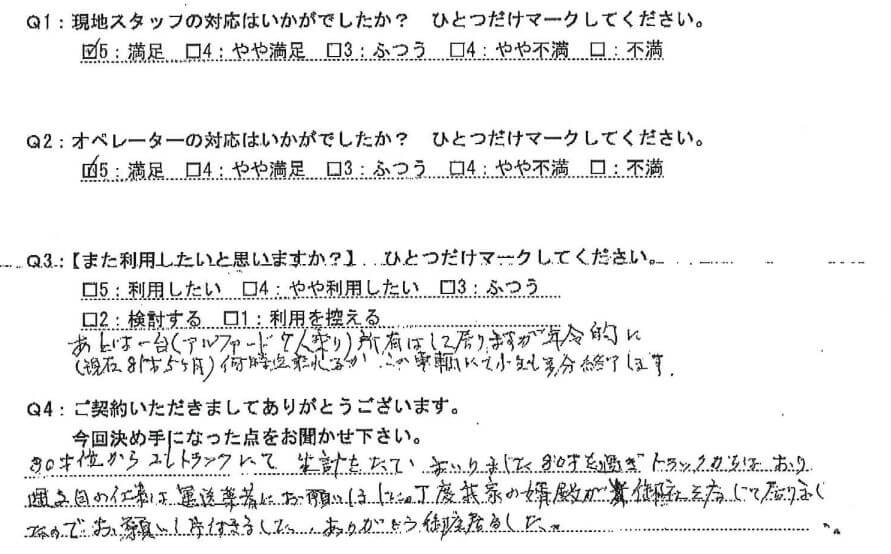 Q1：現地スタッフの対応はいかがでしたか？　ひとつだけマークしてください。
☑5：満足　□4：やや満足　□3：ふつう　□4：やや不満　□：不満
Q2：オペレーターの対応はいかがでしたか？　ひとつだけマークしてください。
☑5：満足　□4：やや満足　□3：ふつう　□4：やや不満　□：不満
Q3：【また利用したいと思いますか？】　ひとつだけマークしてください。
□5：利用したい　□4：やや利用したい　□3：ふつう
□2：検討する　□1：利用を控える
あとは一台(アルファード7人乗り)所有はして居りますが年令的に
(現在81才5ヶ月)何時迄乗れるか 車輌にて 多分終了します.
Q4：ご契約いただきましてありがとうございます。
今回決め手になった点をお聞かせ下さい。
30才位から トラックにて 生計をたてい まいりました 80才を過ぎ トラックからはおり
仕事は運送業者にお願いしました。丁度我家の婿殿が
なのでお願いし片付きました、ありがとう御座居ました。